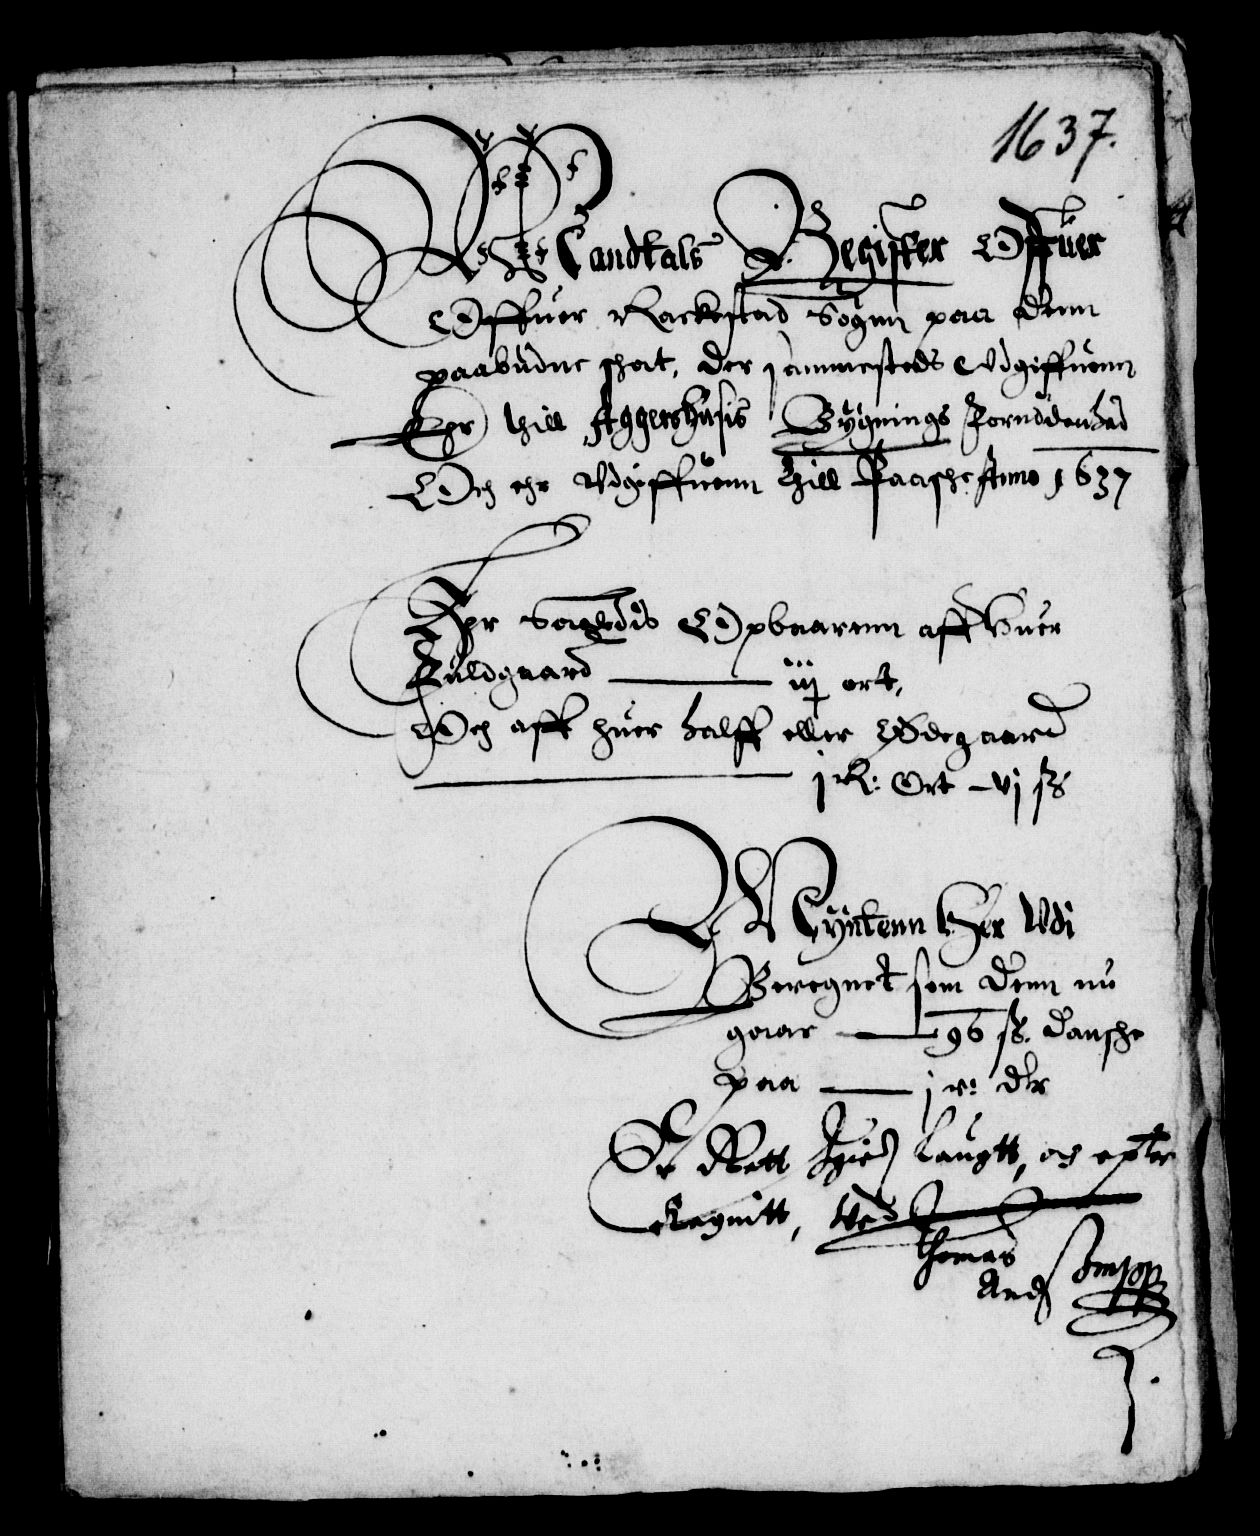 1637.
Mandtals Register Offuer
Offuer Rackestad Sognn paa denn
paabudne skat, der sammesteds Udgiffuenn
Ehr thill Aggershusis Bygnings Fornødenhed
Och ehr Udgiffuenn thill Paaske Anno 1637
Ehr Opbaarenn aff huer
Fuldgaard iij ort,
Och aff huer halff eller Ødegaard
j R: Ort vj sk
Myntenn her Udi
Beregnet som denn nu
gaar 96 sk. danske
paa j r: dlr
Rett laugtt, og epter
Regnitt, Ved
Thomas
And